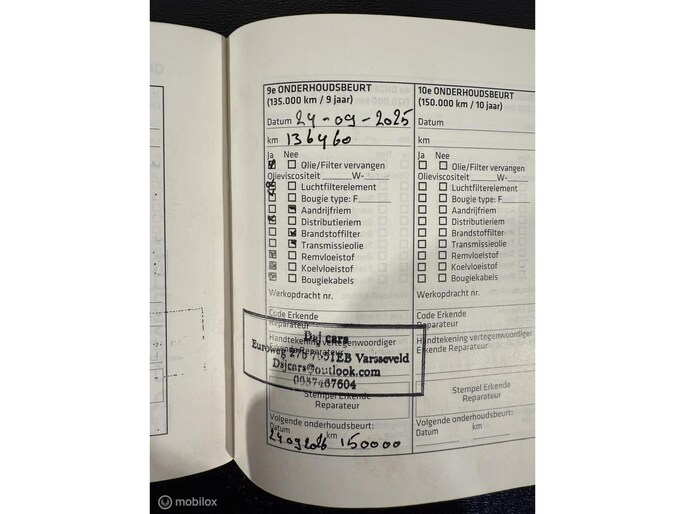 9e ONDERHOUDSBEURT
(135.000 km / 9 jaar)
Datum 24-09-2025
km 136460
Ja Nee
Olie/Filter vervangen
Olieviscositeit ____W-____
Luchtfilterelement
Bougie type: F______
Aandrijfriem
Distributieriem
Brandstoffilter
Transmissieolie
Remvloeistof
Koelvloeistof
Bougiekabels
Werkopdracht nr.
Code Erkende
Reparateur
Handtekening vertegenwoordiger
Erkende Reparateur
Dsj cars
Euroweg 27b 7051EB Varsseveld
Dsjcars@outlook.com
0687467604
Stempel Erkende
Reparateur
Volgende onderhoudsbeurt:
Datum km
24 09 2026 150000
10e ONDERHOUDSBEURT
(150.000 km / 10 jaar)
Datum
km
Ja Nee
Olie/Filter vervangen
Olieviscositeit ____W-____
Luchtfilterelement
Bougie type: F______
Aandrijfriem
Distributieriem
Brandstoffilter
Transmissieolie
Remvloeistof
Koelvloeistof
Bougiekabels
Werkopdracht nr.
Code Erkende
Reparateur
Handtekening vertegenwoordiger
Erkende Reparateur
Stempel Erkende
Reparateur
Volgende onderhoudsbeurt:
Datum km
mobilox